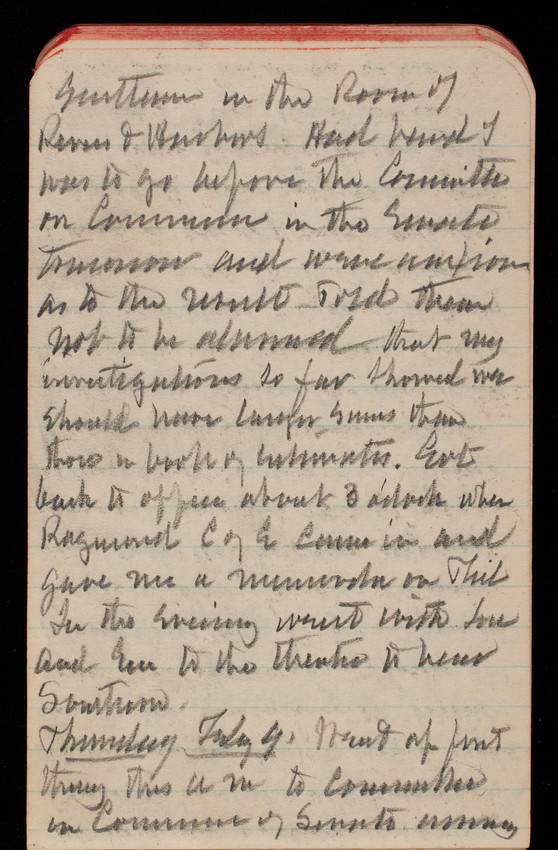 Gentlemen in the Room of
Rivers & Harbors. Had heard I
was to go before the Committee
on Commerce in the Senate
tomorrow and were anxious
as to the result. Told them
not to be alarmed that my
investigations so far showed we
should have larger sums than
those in book of estimates. Got
back to office about 3 o'clock when
Raymond C of E came in and
gave me a memorda on Phil
In the evening went with
and to the theatre to hear
Southern.
Thursday July 9. Went up first
thing this a m to Committee
on Commerce of Senate